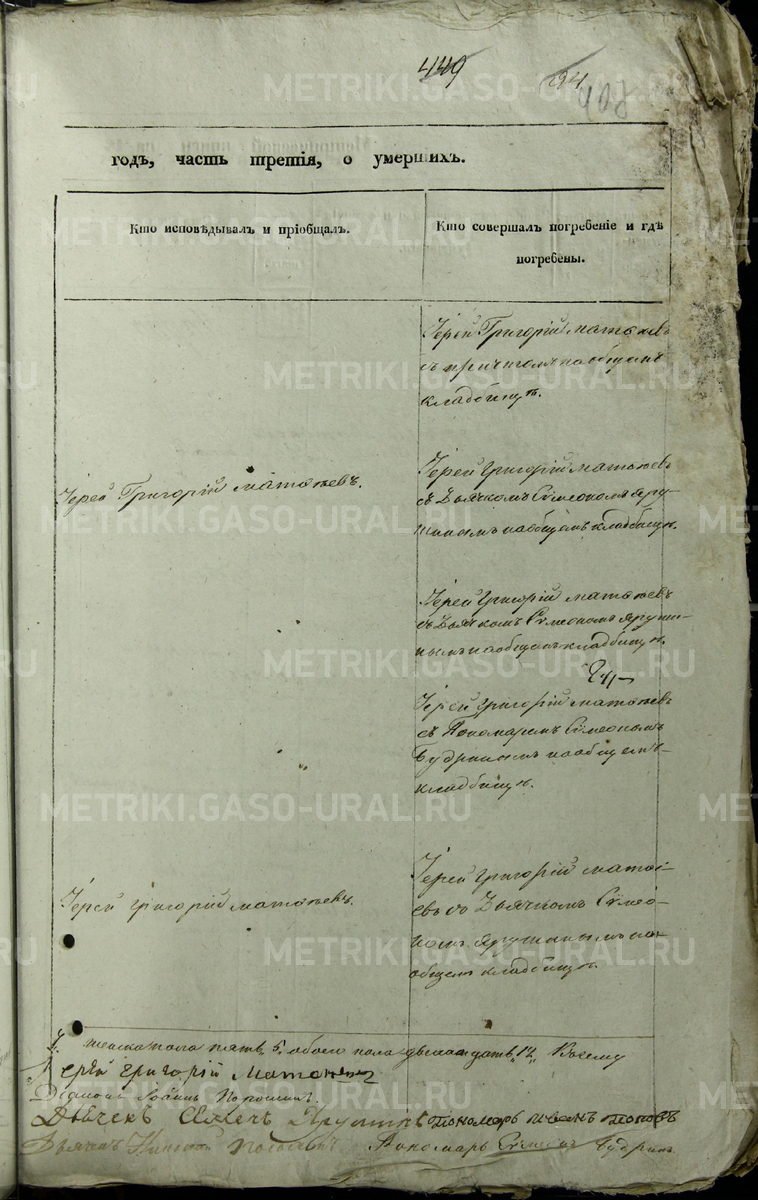 449
94
407
годъ, часть третія, о умершихъ.
Кто исповѣдывалъ и пріобщалъ.
Кто совершалъ погребеніе и гдѣ
погребены.
Іерей Григорій Матѳіевъ
съ причтомъ на общемъ
кладбищѣ.
Іерей Григорій Матѳіевъ.
Іерей Григорій Матѳіевъ
съ Дьячкомъ Сѵмеономъ Яру-
шинымъ на общемъ кладбищѣ.
Іерей Григорій Матѳіевъ
съ Дьячкомъ Сѵмеономъ Яруши-
нымъ на общемъ кладбищѣ.
Іерей Григорій Матѳіевъ
съ Пономаремъ Сѵмеономъ
Чудринымъ на общемъ
кладбищѣ.
Іерей Григорій Матѳіевъ.
Іерей Григорій Матѳі-
евъ съ Дьячкомъ Сѵмео-
номъ Ярушинымъ на
общемъ кладбищѣ.
женска пола пять, 5. обоего пола двенадцать, 12, Къ сему
Іерей Григорій Матѳіевъ
Діаконъ Іоаннъ Порошинъ.
Дьячекъ Ярушинъ пономарь Иванъ Поповъ
Дьячекъ Пономарь Сѵмеонъ Чудринъ.
METRIKI.GASO-URAL.RU